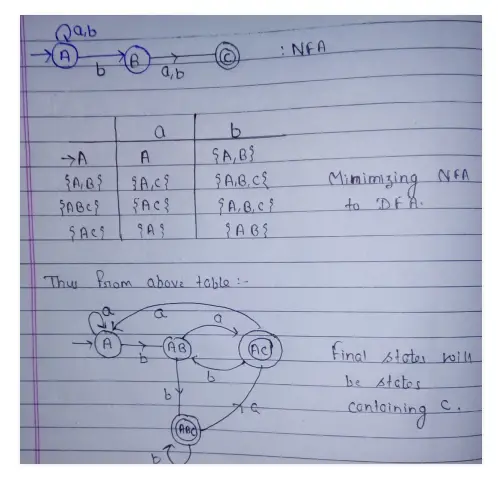 a,b
A B C : NFA
b a,b
a b
→A A {A,B}
{A,B} {A,C} {A,B,C}
{ABC} {AC} {A,B,C}
{AC} {A} {AB}
Minimizing NFA
to DFA.
Thus from above table:-
a a a
A AB AC
b b
b
a
ABC
b
Final states will
be states
containing C.